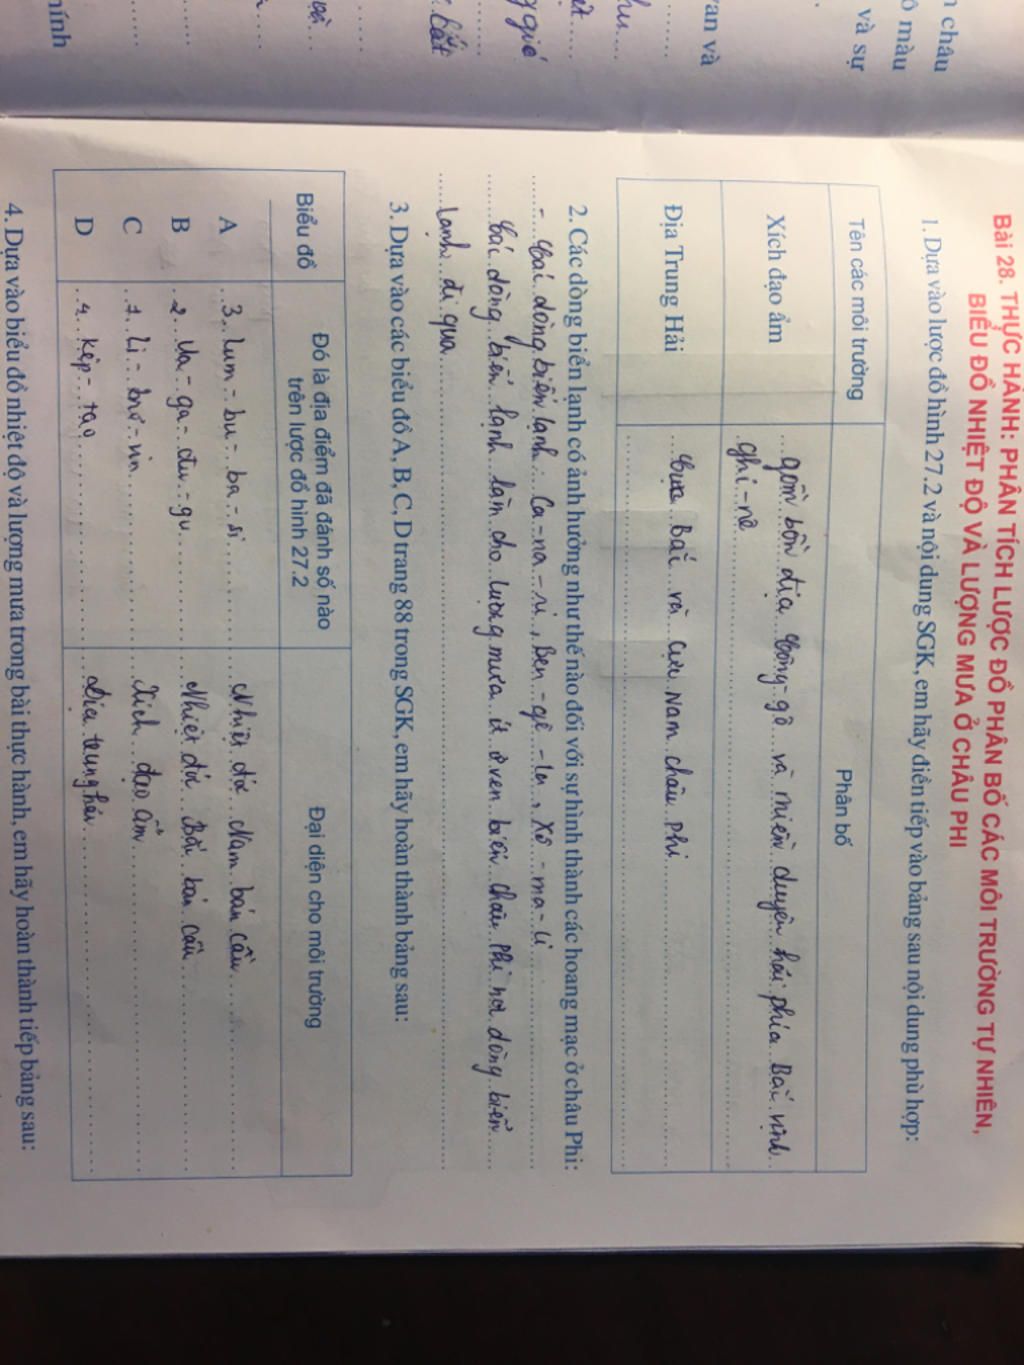 n châu
ô màu
và sự
van và
hu...
ật.....
g gié
. bắt
và...
hính
Bài 28. THỰC HÀNH: PHÂN TÍCH LƯỢC ĐỒ PHÂN BỐ CÁC MÔI TRƯỜNG TỰ NHIÊN,
BIỂU ĐỒ NHIỆT ĐỘ VÀ LƯỢNG MƯA Ở CHÂU PHI
1. Dựa vào lược đồ hình 27.2 và nội dung SGK, em hãy điền tiếp vào bảng sau nội dung phù hợp:
Tên các môi trường Phân bố
Xích đạo ẩm gồm bồn địa Công-gô và miền duyên hải phía Bắc vịnh
Ghi-nê
Địa Trung Hải Cực Bắc và cực Nam châu Phi
2. Các dòng biển lạnh có ảnh hưởng như thế nào đối với sự hình thành các hoang mạc ở châu Phi:
- Các dòng biển lạnh: Ca-na-ri, Ben-ghê-la, Xô-ma-li
Các dòng biển lạnh làm cho lượng mưa ít ở ven biển châu Phi nơi dòng biển
lạnh đi qua
3. Dựa vào các biểu đồ A, B, C, D trang 88 trong SGK, em hãy hoàn thành bảng sau:
Biểu đồ Đó là địa điểm đã đánh số nào Đại diện cho môi trường
trên lược đồ hình 27.2
A 3. Lum-bu-ba-si Nhiệt đới Nam bán cầu
B 2. Ua-ga-đu-gu Nhiệt đới Bắc bán cầu
C 1. Li-brơ-vin Xích đạo ẩm
D 4. Kêp-tao Địa trung hải
4. Dựa vào biểu đồ nhiệt độ và lượng mưa trong bài thực hành, em hãy hoàn thành tiếp bảng sau: